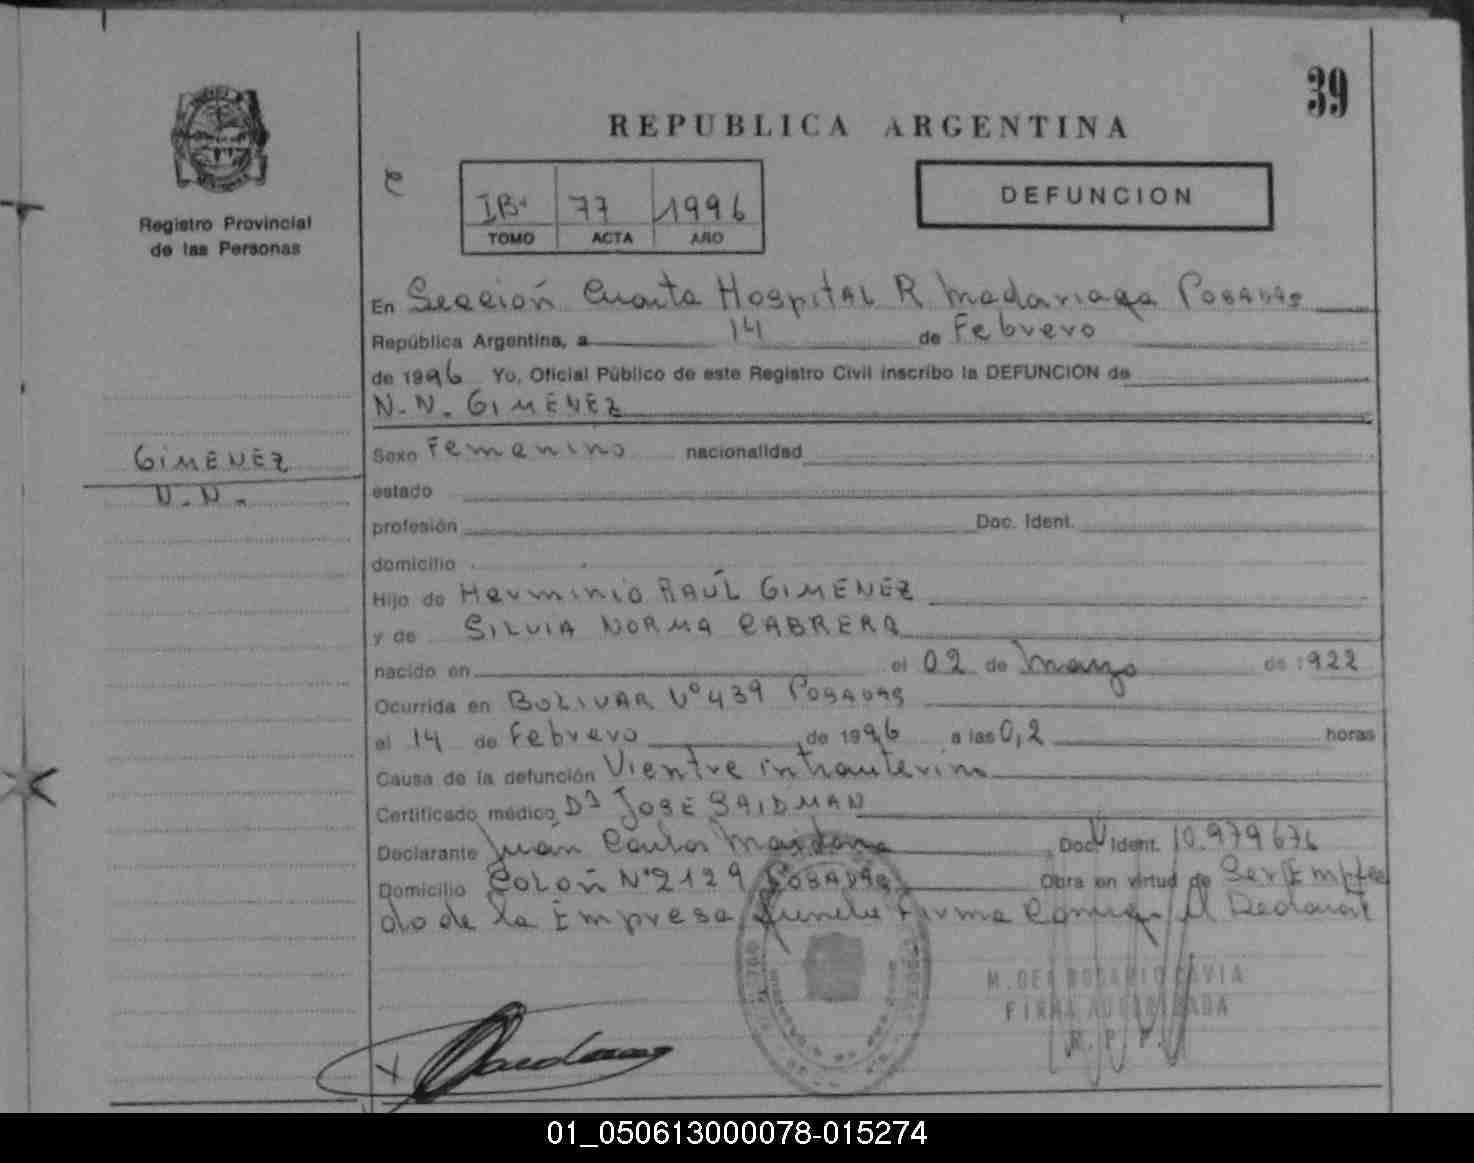 39
REPUBLICA ARGENTINA
77 1996
TOMO ACTA AÑO
DEFUNCION
Registro Provincial
de las Personas
GIMENEZ
N.N.
En Sección Cuarta Hospital R. Madariaga Posadas
República Argentina, a 14 de Febrero
de 1996 Yo, Oficial Público de este Registro Civil inscribo la DEFUNCION de
N.N. GIMENEZ
Sexo Femenino nacionalidad
estado
profesión Doc. Ident.
domicilio
Hijo de Herminio RAÚL GIMENEZ
y de SILVIA NORMA CABRERA
nacido en el 02 de Marzo de 1922
Ocurrida en BOLIVAR Nº 439 Posadas
el 14 de Febrero de 1996 a las 0,2 horas
Causa de la defunción Vientre intrauterino
Certificado médico Dr JOSE SAIDMAN
Declarante Juán Carlos Maidana Doc. Ident. 10.979676
Domicilio COLON Nº 2129 Posadas Obra en virtud de Ser Emplea
do de la Empresa Funebre Firma el Declarante
M. DEL ROSARIO CAVIA
FIRMA AUTORIZADA
R. P. P.
01_050613000078-015274